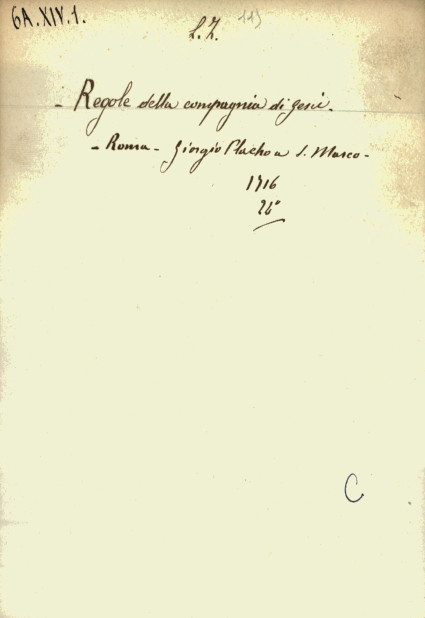 6A.XIV.1.
113
L.Z.
- Regole della compagnia di Gesù.
- Roma - Giorgio Placho a S. Marco -
1716
C